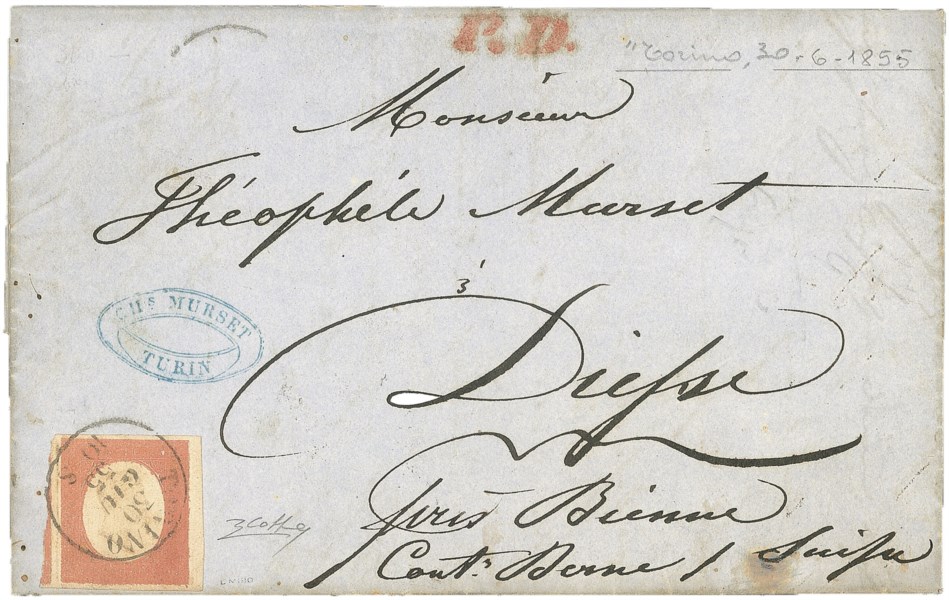 P.D.
"Torino, 30-6-1855
Monsieur
Théophile Murset
à
Diesse
CHS MURSET
TURIN
près Bienne
Cant: Berne / Suisse
TORINO
30
GIU
55
10 S